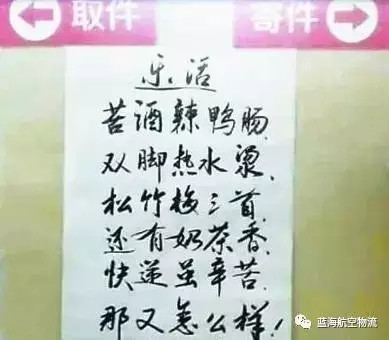 取件 寄件
乐活
苦酒辣鸭肠,
双脚热水烫,
松竹梅三首,
还有奶茶香,
快递虽辛苦,
那又怎么样!
蓝海航空物流